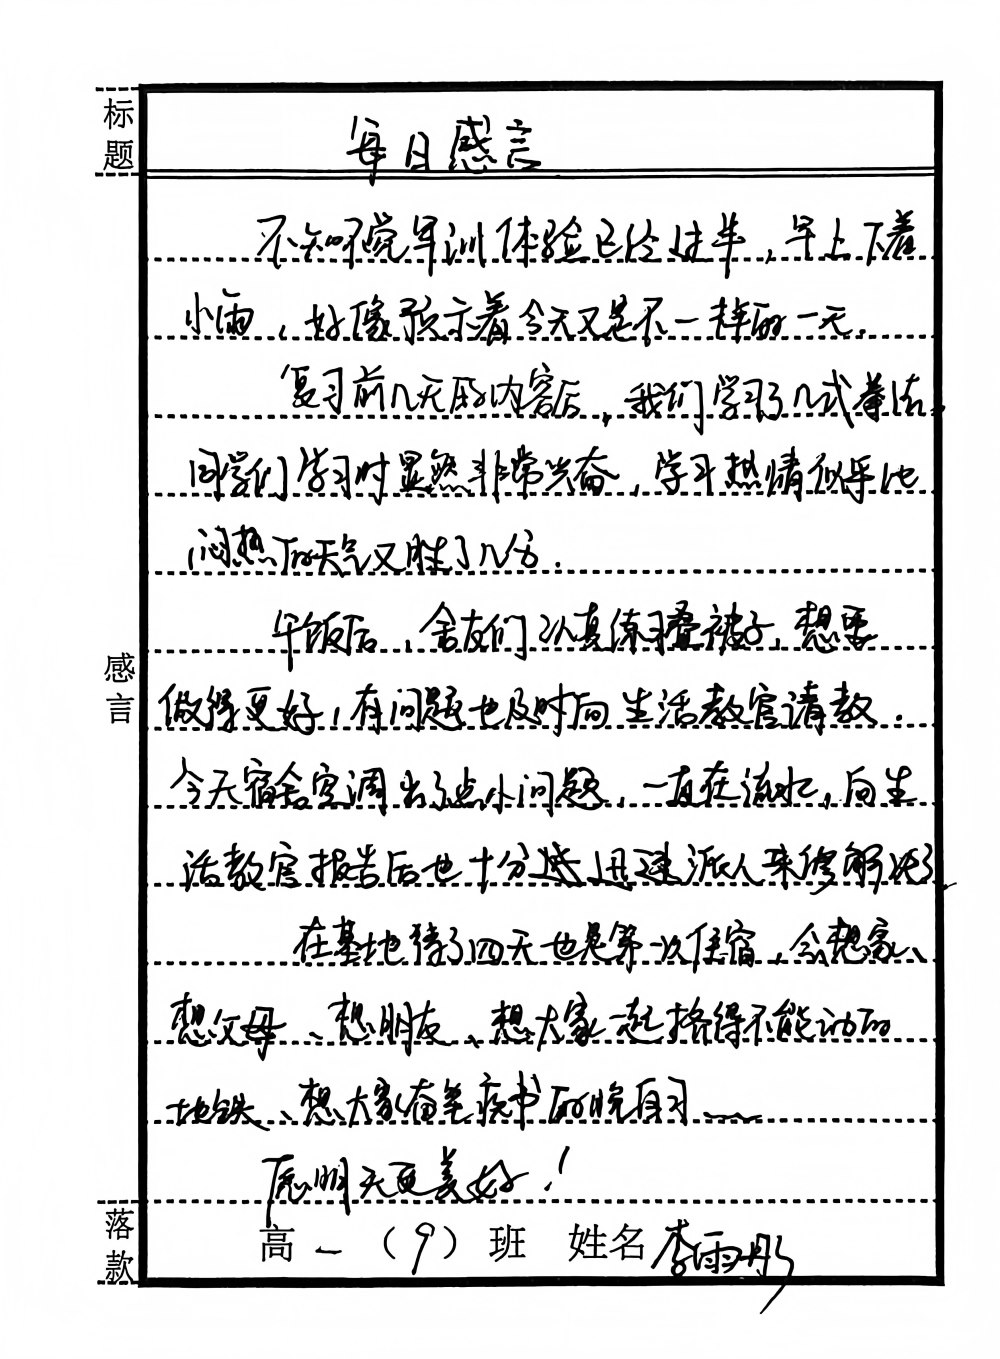 标题
每日感言
不知不觉军训体验已经过半，早上下着
小雨，好像预示着今天又是不一样的一天。
复习前几天的内容后，我们学习了几式拳法。
同学们学习时显然非常兴奋，学习热情似乎比
闷热的天气又胜了几分。
午饭后，舍友们认真练习叠被子，想要
感言
做得更好，有问题也及时向生活教官请教。
今天宿舍空调出了点小问题，一直在流水，向生
活教官报告后也十分迅速派人来修解决了。
在基地待了四天也是第一次住宿，会想家、
想父母、想朋友、想大家一起挤得不能动的
地铁、想大家奋笔疾书的晚自习……
愿明天更美好！
落款
高一（9）班 姓名李雨彤